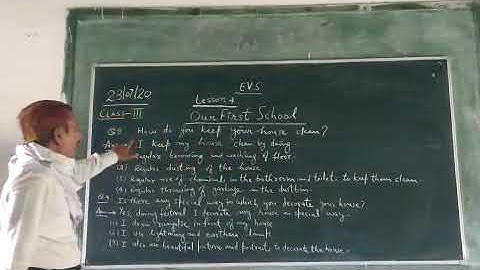 EVS
23/07/20
Lesson 4
CLASS-III
Our First School
Q8 How do you keep your house clean?
Ans I keep my house clean by doing
Regular brooming and washing of floor.
(2) Regular dusting of the house
(3) Regular use of chemicals in the bathroom and toilet to keep them clean.
(4) Regular throwing of garbage in the dustbin.
Q9 Is there any special way in which you decorate your house?
A Yes, during festival I decorate my house in special way.
(i) I draw rangoli in front of my house
(ii) I use lightning and earthen lamp
(3) I also use beautiful picture and portrait to decorate the house.